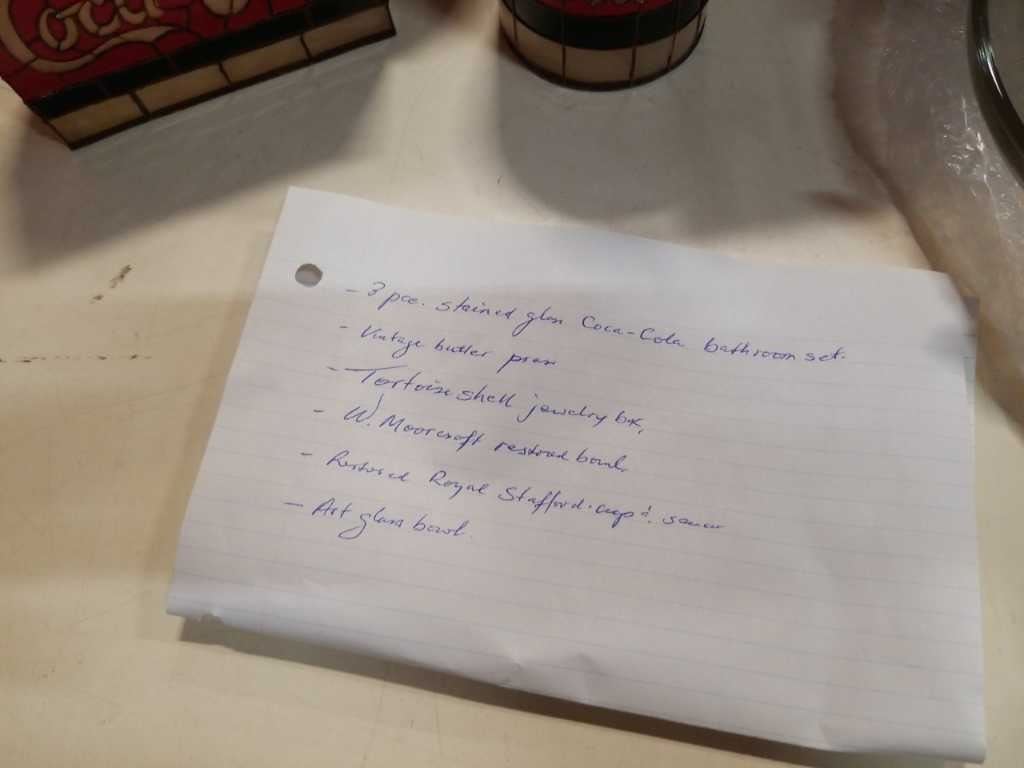 Coca
- 3 pce. stained glass Coca-Cola bathroom set.
- Vintage butter press
- Tortoise shell jewelry box,
- W. Moorcroft restored bowl,
- Restored Royal Stafford cup & saucer
- Art glass bowl.